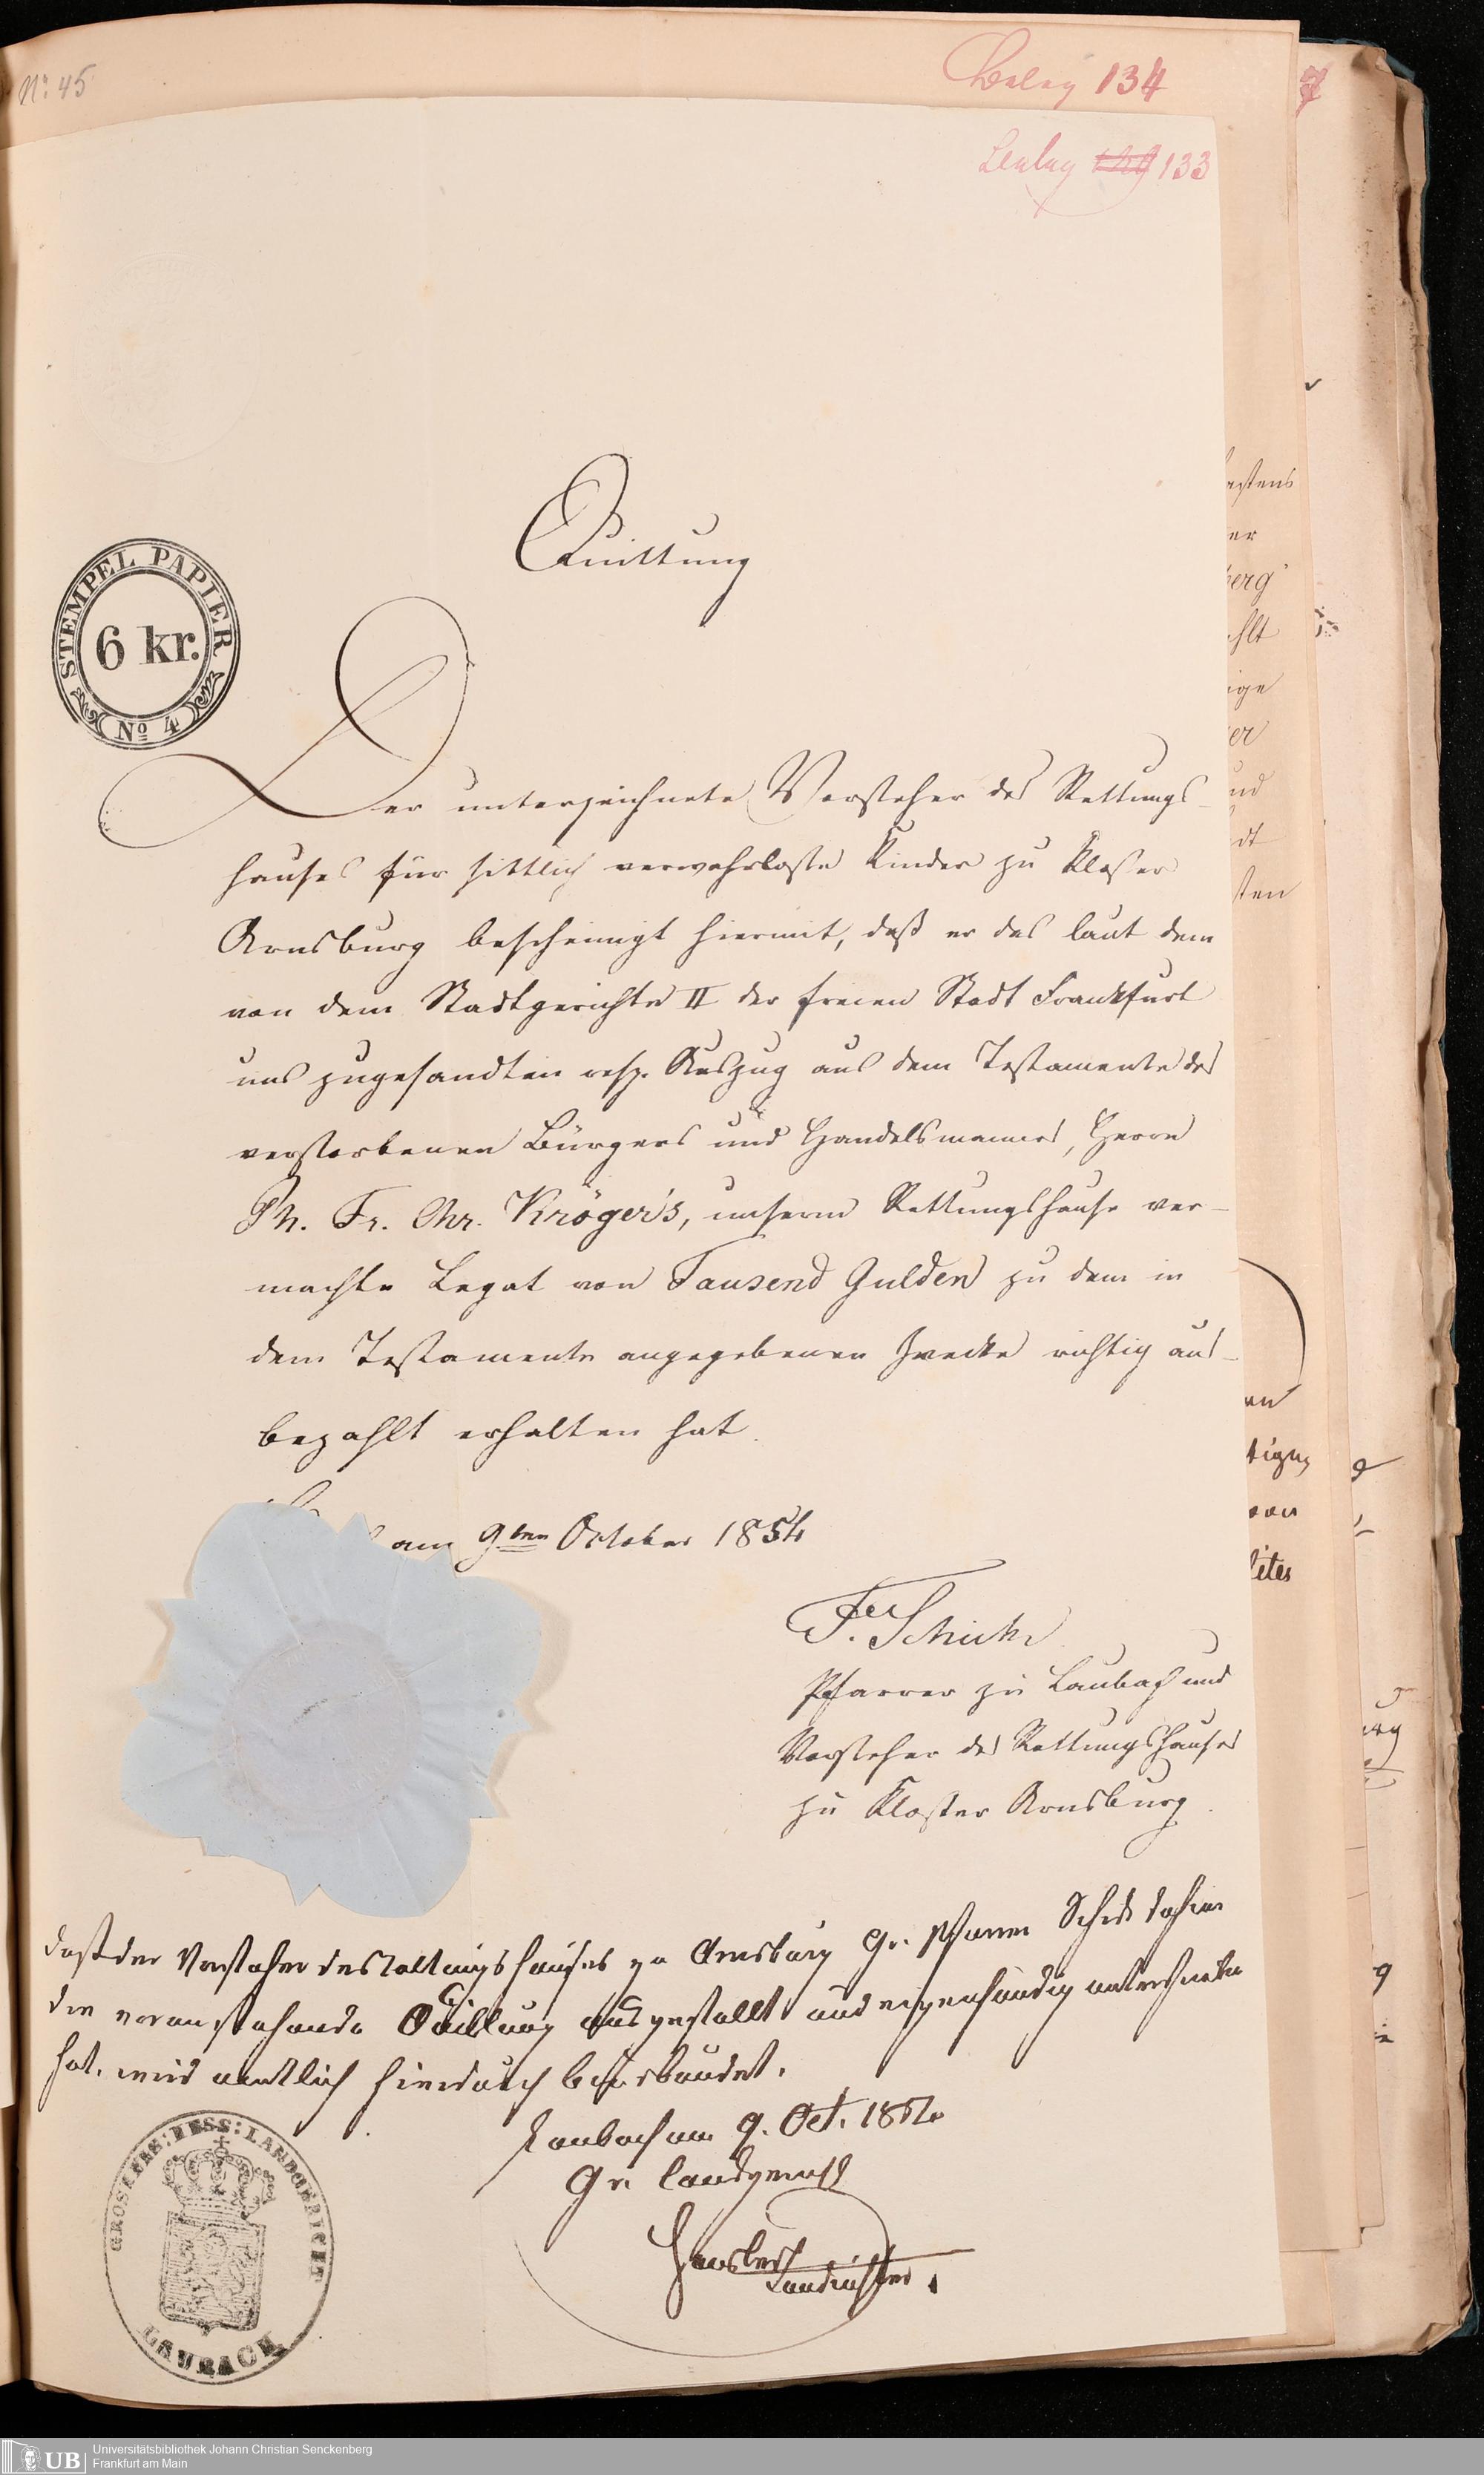 No. 45
Beleg 134
Beleg 133
Quittung
STEMPEL PAPIER
6 kr.
No 4
Der unterzeichnete Vorsteher des Rettungs-
hauses für sittlich verwahrloste Kinder zu Kloster
Arnsburg bescheinigt hiermit, daß er das laut dem
von dem Stadtgerichte II der freien Stadt Frankfurt
uns zugesandten resp. Auszug aus dem Testamente des
verstorbenen Bürgers und Handelsmannes, Herrn
Ph. Fr. Chr. Kröger's, unserm Rettungshause ver-
machte Legat von Tausend Gulden zu dem in
dem Testamente angegebenen Zwecke richtig aus-
bezahlt erhalten hat.
am 9ten October 1854
F.
Pfarrer zu Laubach und
Vorsteher des Rettungshauses
zu Kloster Arnsburg.
Daß der Vorsteher des Rettungshauses zu Arnsburg Hr. Pfarrer dahier
die voranstehende Quittung ausgestellt und eigenhändig unterschrieben
hat, wird amtlich hierdurch beurkundet.
Laubach am 9. Oct. 1854
Gr. Landgericht
Landrichter.
GROSHERZ: HESS: LANDGERICHT
LAUBACH
UB
Universitätsbibliothek Johann Christian Senckenberg
Frankfurt am Main